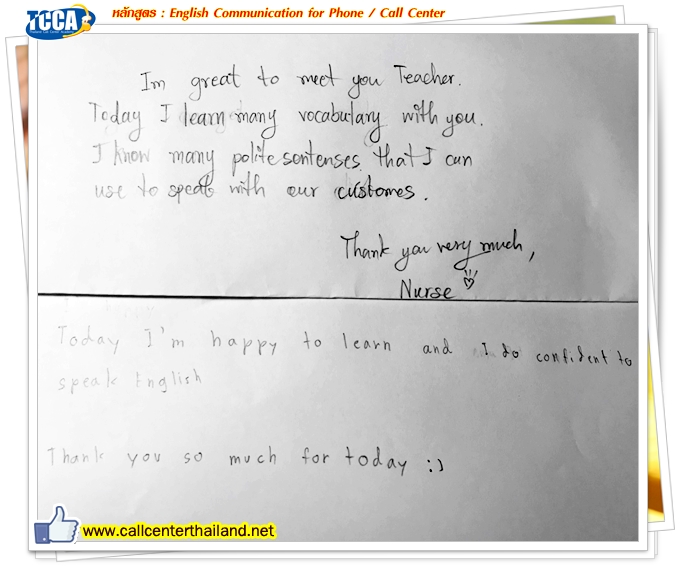 TCCA
หลักสูตร : English Communication for Phone / Call Center
Im great to meet you Teacher.
Today I learn many vocabulary with you.
I know many polite sentenses that I can
use to speak with our customes.
Thank you very much,
Nurse
Today I'm happy to learn and I do confident to
speak English
Thank you so much for today :)
www.callcenterthailand.net